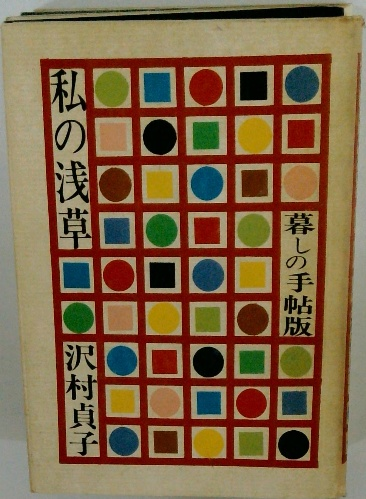 私の浅草
暮しの手帖版
沢村貞子